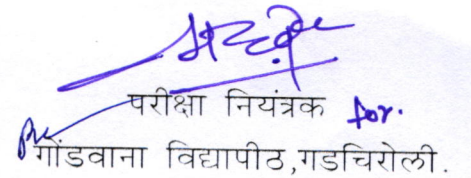 परीक्षा नियंत्रक for.
गोंडवाना विद्यापीठ,गडचिरोली.